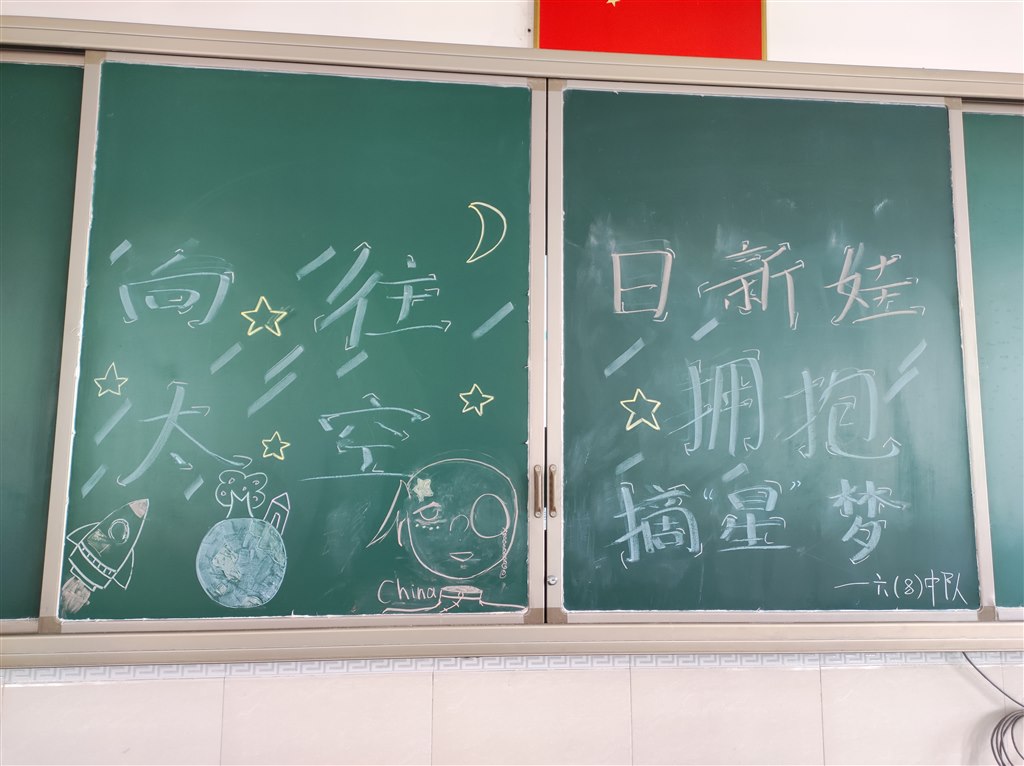 向往
太空
China
日新娃
拥抱
摘“星”梦
—六(8)中队